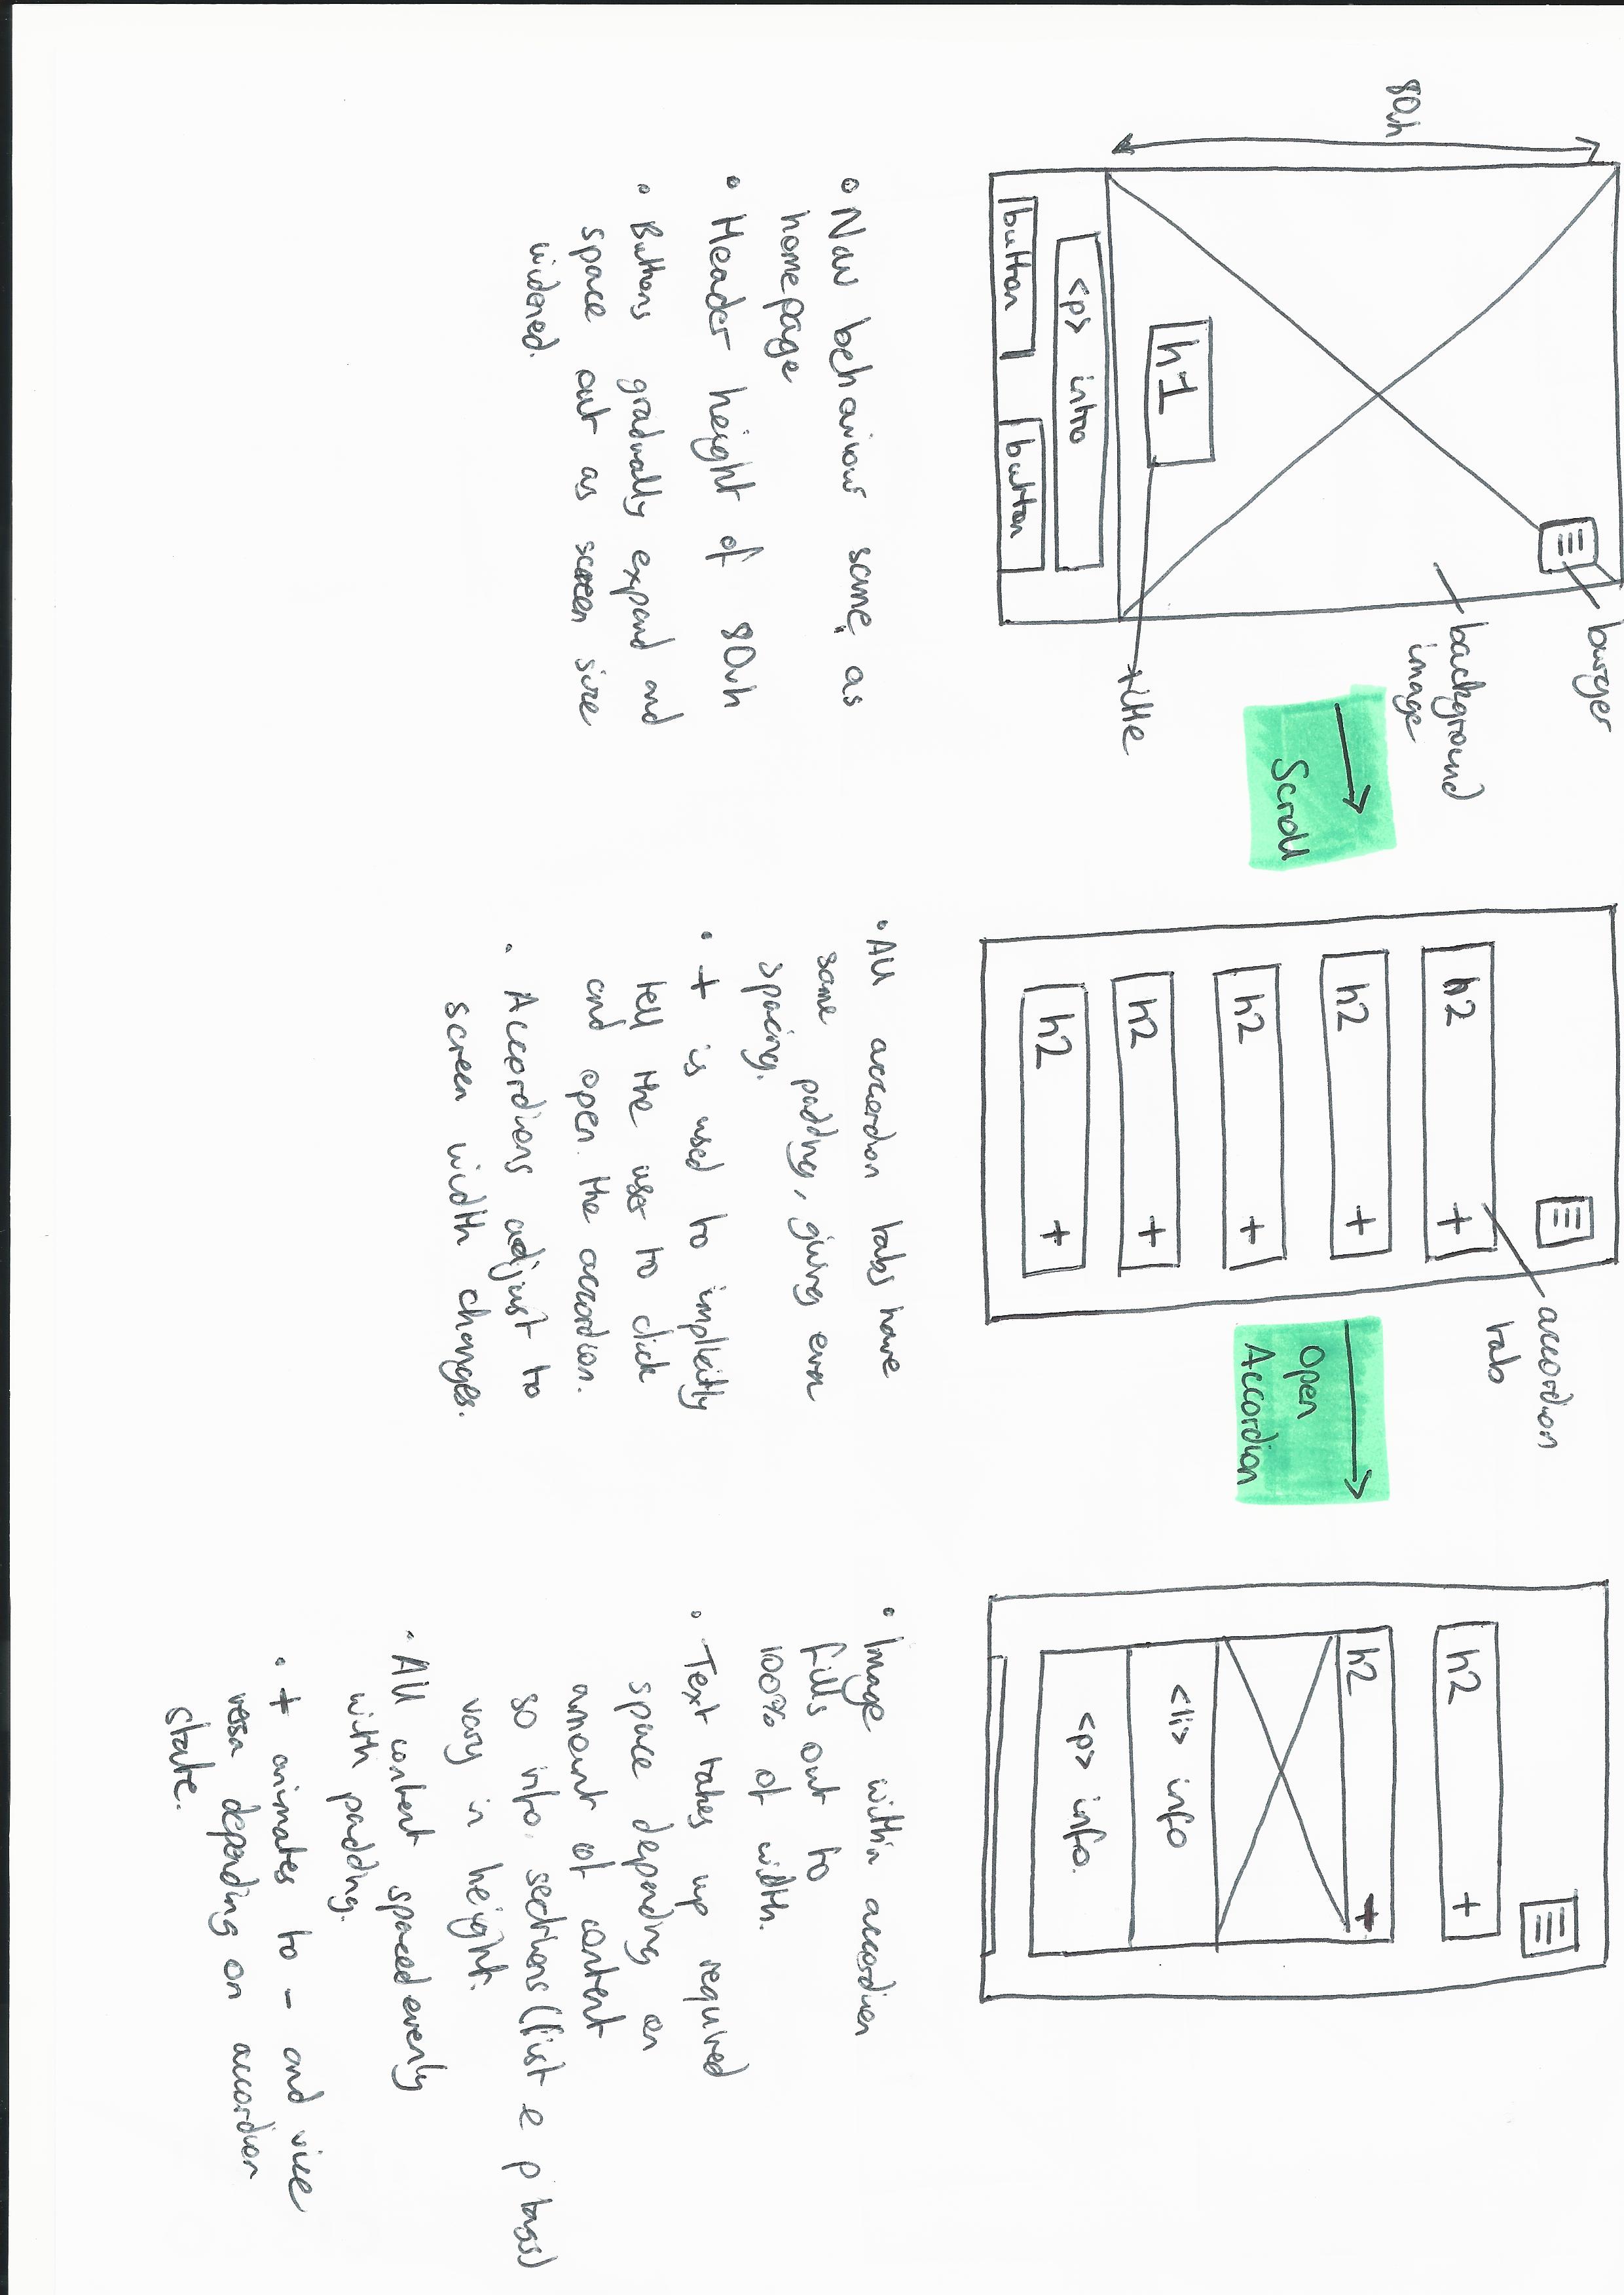 80vh
burger
background
image
h1
title
<p> intro
button
button
Scroll
• Nav behaviour same as
homepage
• Header height of 80vh
• Buttons gradually expand and
space out as screen size
widened.
h2 +
h2 +
h2 +
h2 +
h2 +
accordion
tab
Open
Accordion
• All accordion tabs have
same padding, giving even
spacing.
• + is used to implicitly
tell the user to click
and open the accordion.
• Accordions adjust to
screen width changes.
h2 +
h2 +
<li> info
<p> info.
• Image within accordion
fills out to
100% of width.
• Text takes up required
space depending on
amount of content
so info. sections (list & p tags)
vary in height.
• All content spaced evenly
with padding.
• + animates to - and vice
versa depending on accordion
state.